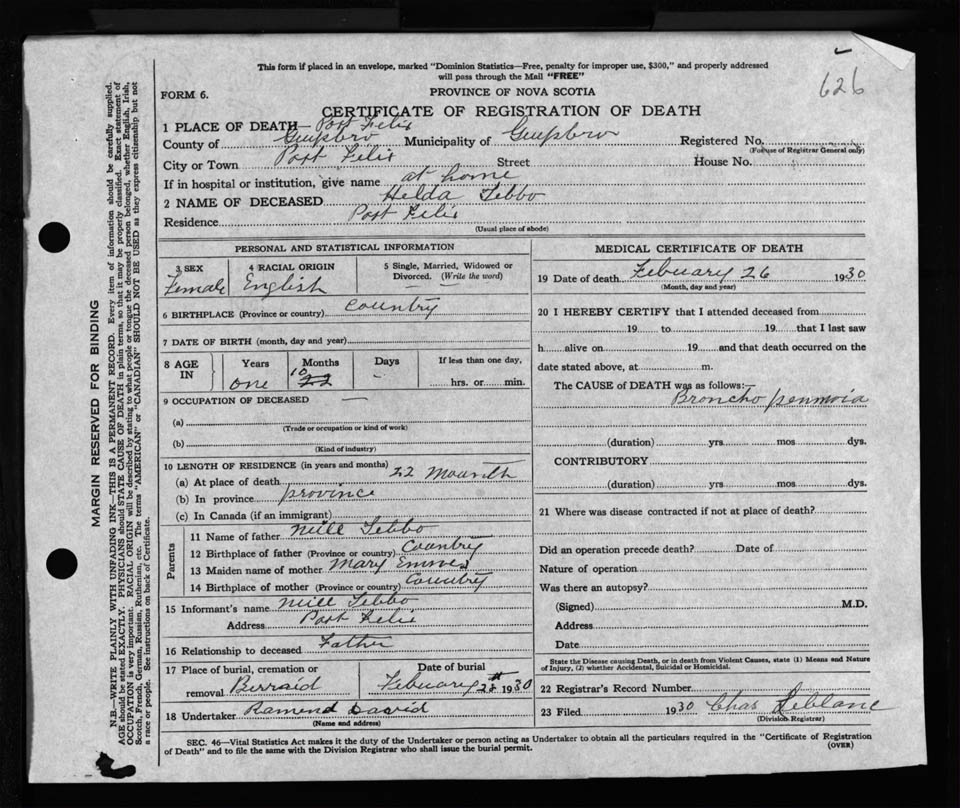 This form if placed in an envelope, marked "Dominion Statistics—Free, penalty for improper use, $300," and properly addressed
will pass through the Mail "FREE"
626
FORM 6.
PROVINCE OF NOVA SCOTIA
CERTIFICATE OF REGISTRATION OF DEATH
1 PLACE OF DEATH— Port Felix
County of Guysbro Municipality of Guysbro Registered No.
(For use of Registrar General only)
City or Town Port Felix Street House No.
If in hospital or institution, give name at home
2 NAME OF DECEASED Helda Tebbo
Residence Port Felix
(Usual place of abode)
PERSONAL AND STATISTICAL INFORMATION
3 SEX 4 RACIAL ORIGIN 5 Single, Married, Widowed or
Divorced. (Write the word)
Female English
6 BIRTHPLACE (Province or country) Country
7 DATE OF BIRTH (month, day and year)
8 AGE IN Years Months Days If less than one day,
one 10 22 hrs. or min.
9 OCCUPATION OF DECEASED —
(a)
(Trade or occupation or kind of work)
(b)
(Kind of industry)
10 LENGTH OF RESIDENCE (in years and months)
(a) At place of death 22 Mounth
(b) In province province
(c) In Canada (if an immigrant)
Parents
11 Name of father Neill Tebbo
12 Birthplace of father (Province or country) Country
13 Maiden name of mother Mary
14 Birthplace of mother (Province or country) Country
15 Informant's name Neill Tebbo
Address Port Felix
16 Relationship to deceased Father
17 Place of burial, cremation or Date of burial
removal Berraid February 28 1930
18 Undertaker Ramend David
(Name and address)
MEDICAL CERTIFICATE OF DEATH
19 Date of death Febuary 26 1930
(Month, day and year)
20 I HEREBY CERTIFY that I attended deceased from
19 to 19 that I last saw
h alive on 19 and that death occurred on the
date stated above, at m.
The CAUSE OF DEATH was as follows:—
Broncho penmoia
(duration) yrs. mos. dys.
CONTRIBUTORY
(duration) yrs. mos. dys.
21 Where was disease contracted if not at place of death?
Did an operation precede death? Date of
Nature of operation
Was there an autopsy?
(Signed) M.D.
Address
Date
State the Disease causing Death, or in death from Violent Causes, state (1) Means and Nature
of Injury, (2) whether Accidental, Suicidal or Homicidal.
22 Registrar's Record Number
23 Filed 1930 Chas Leblanc
(Division Registrar)
SEC. 46—Vital Statistics Act makes it the duty of the Undertaker or person acting as Undertaker to obtain all the particulars required in the "Certificate of Registration
of Death" and to file the same with the Division Registrar who shall issue the burial permit.
(OVER)
MARGIN RESERVED FOR BINDING
N.B.—WRITE PLAINLY WITH UNFADING INK—THIS IS A PERMANENT RECORD. Every item of information should be carefully supplied.
AGE should be stated EXACTLY. PHYSICIANS should STATE CAUSE OF DEATH in plain terms, so that it may be properly classified. Exact statement of
OCCUPATION is very important. RACIAL ORIGIN will be described by stating to what people or tongue the deceased person belonged, whether English, Irish,
Scotch, French, German, Russian, Ruthenian, etc. The terms "AMERICAN" or "CANADIAN" SHOULD NOT BE USED as they express citizenship but not
a race or people. See instructions on back of Certificate.